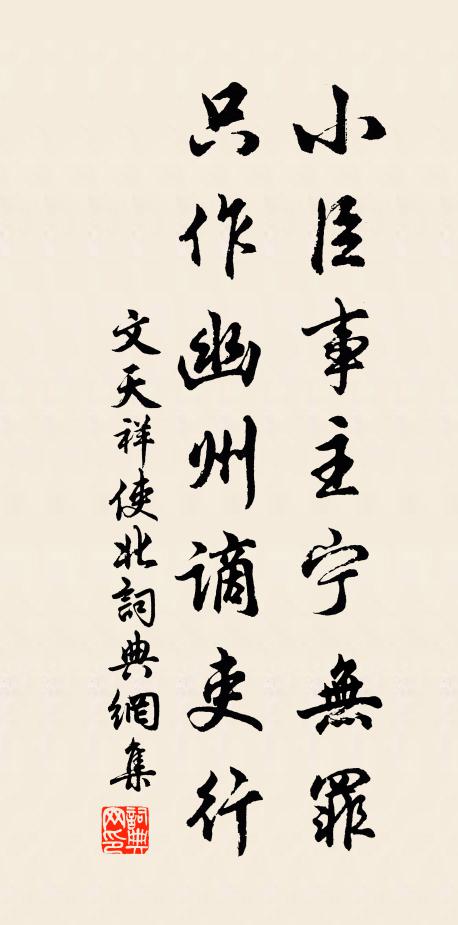 小臣事主宁無罪
只作幽州谪吏行
文天祥使北詞典網集
詞典
网印